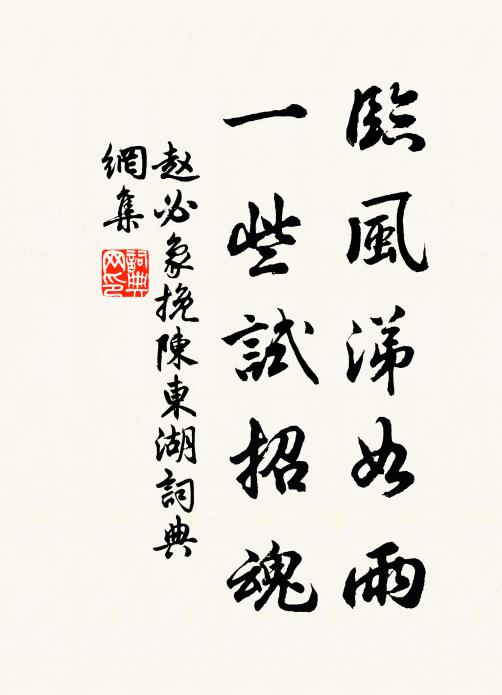 臨風涕如雨
一些試招魂
赵必象挽陳東湖詞典
網集
詞典
网印